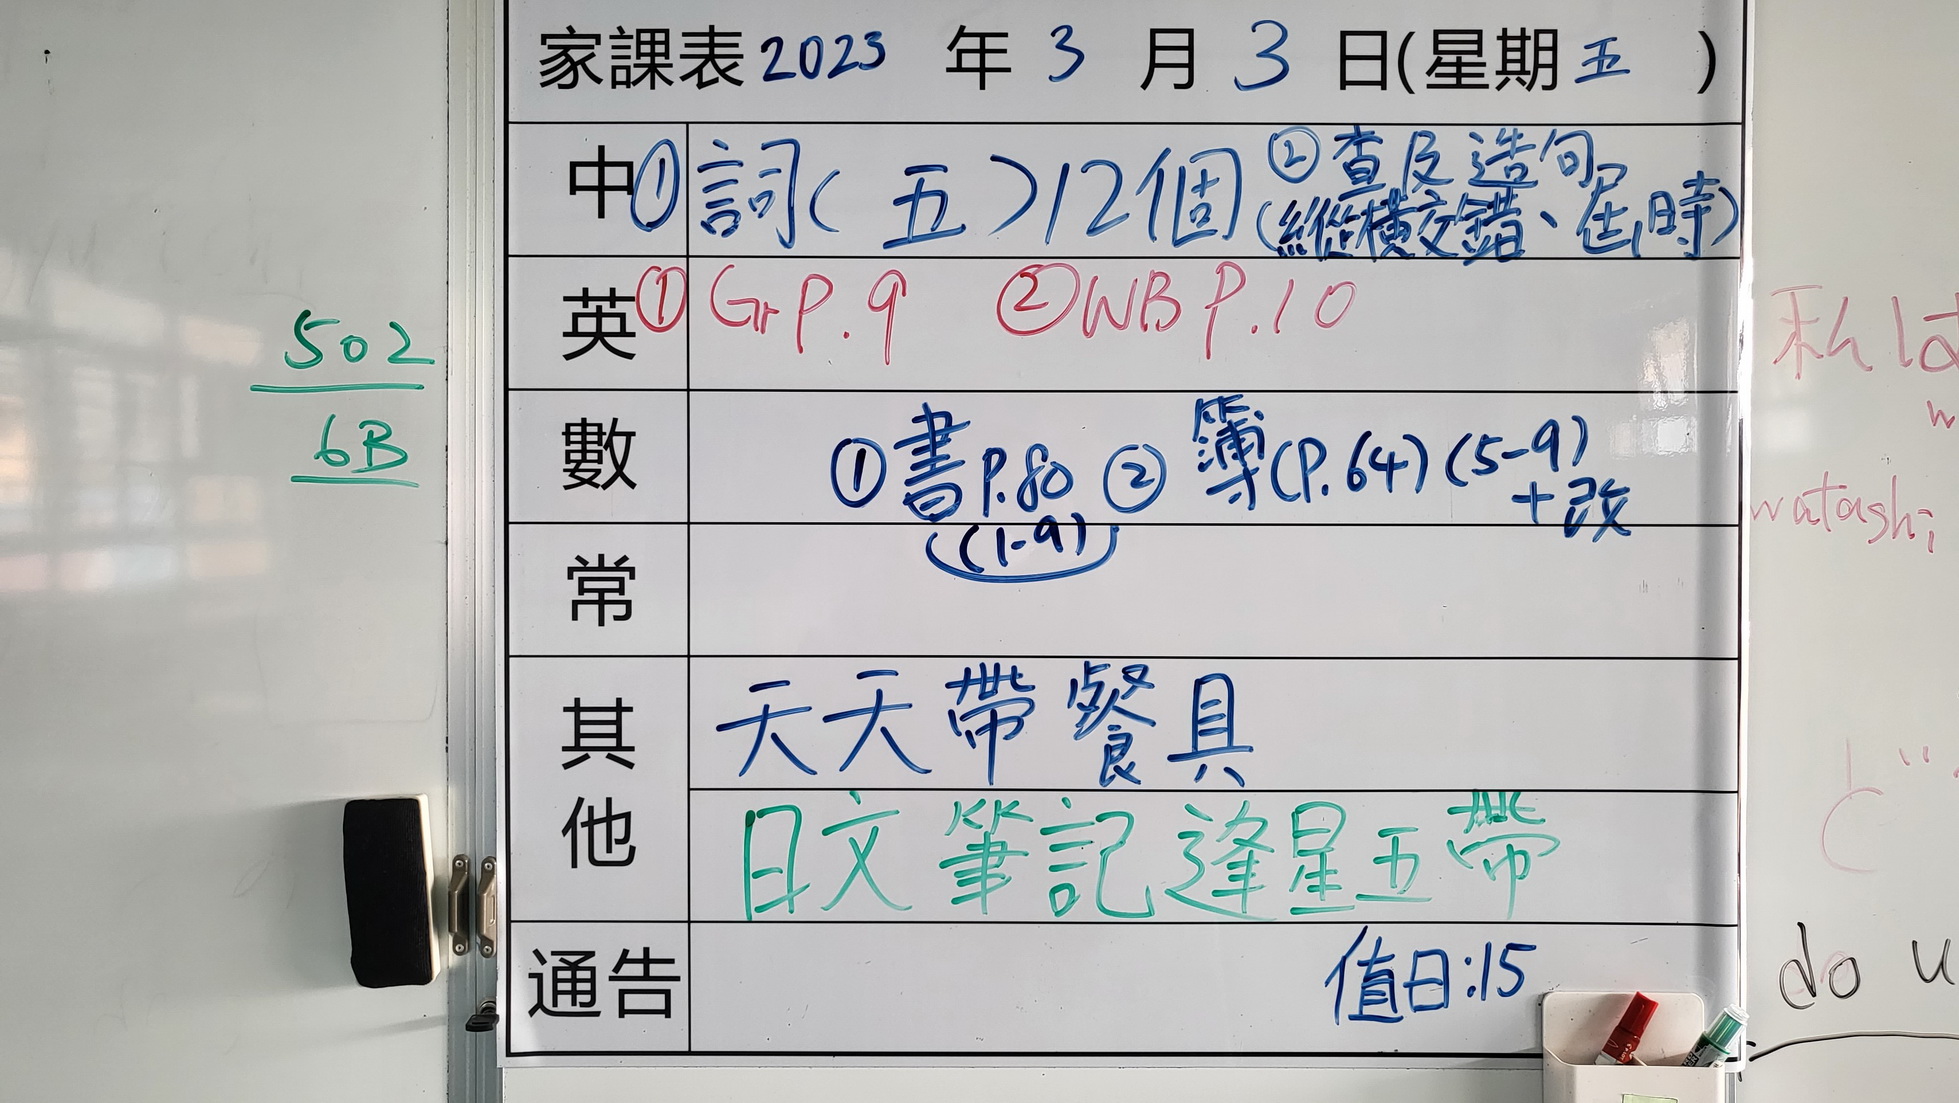 家課表 2023 年 3 月 3 日(星期五)
中 ① 詞(五)12個 ② 查及造句
(縱橫交錯、屆時)
英 ① Gr P.9 ② WB P.10
數 ① 書 P.80 ② 簿(P.64)(5-9)
+改
(1-9)
常
其他
天天帶餐具
日文筆記逢星五帶
通告 值日:15
502
6B
私は
w
watashi
ど
do u